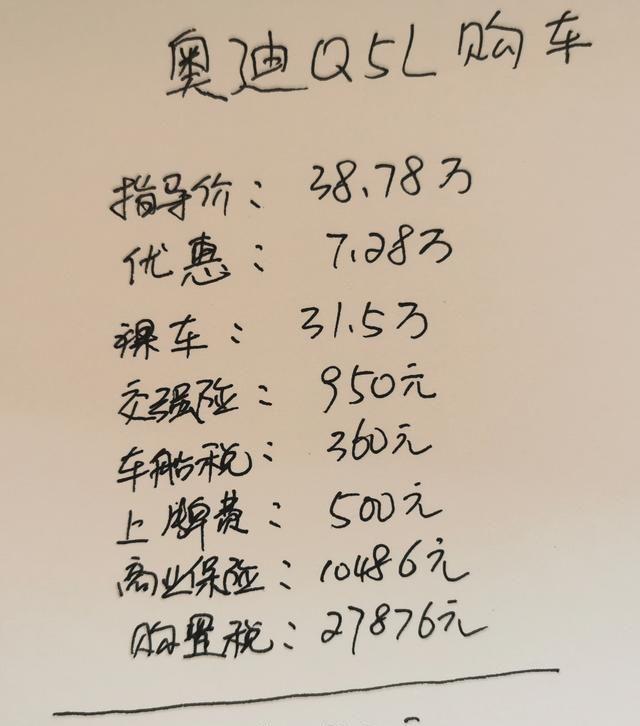 奥迪Q5L购车
指导价：38.78万
优惠：7.28万
裸车：31.5万
交强险：950元
车船税：360元
上牌费：500元
商业保险：10486元
购置税：27876元